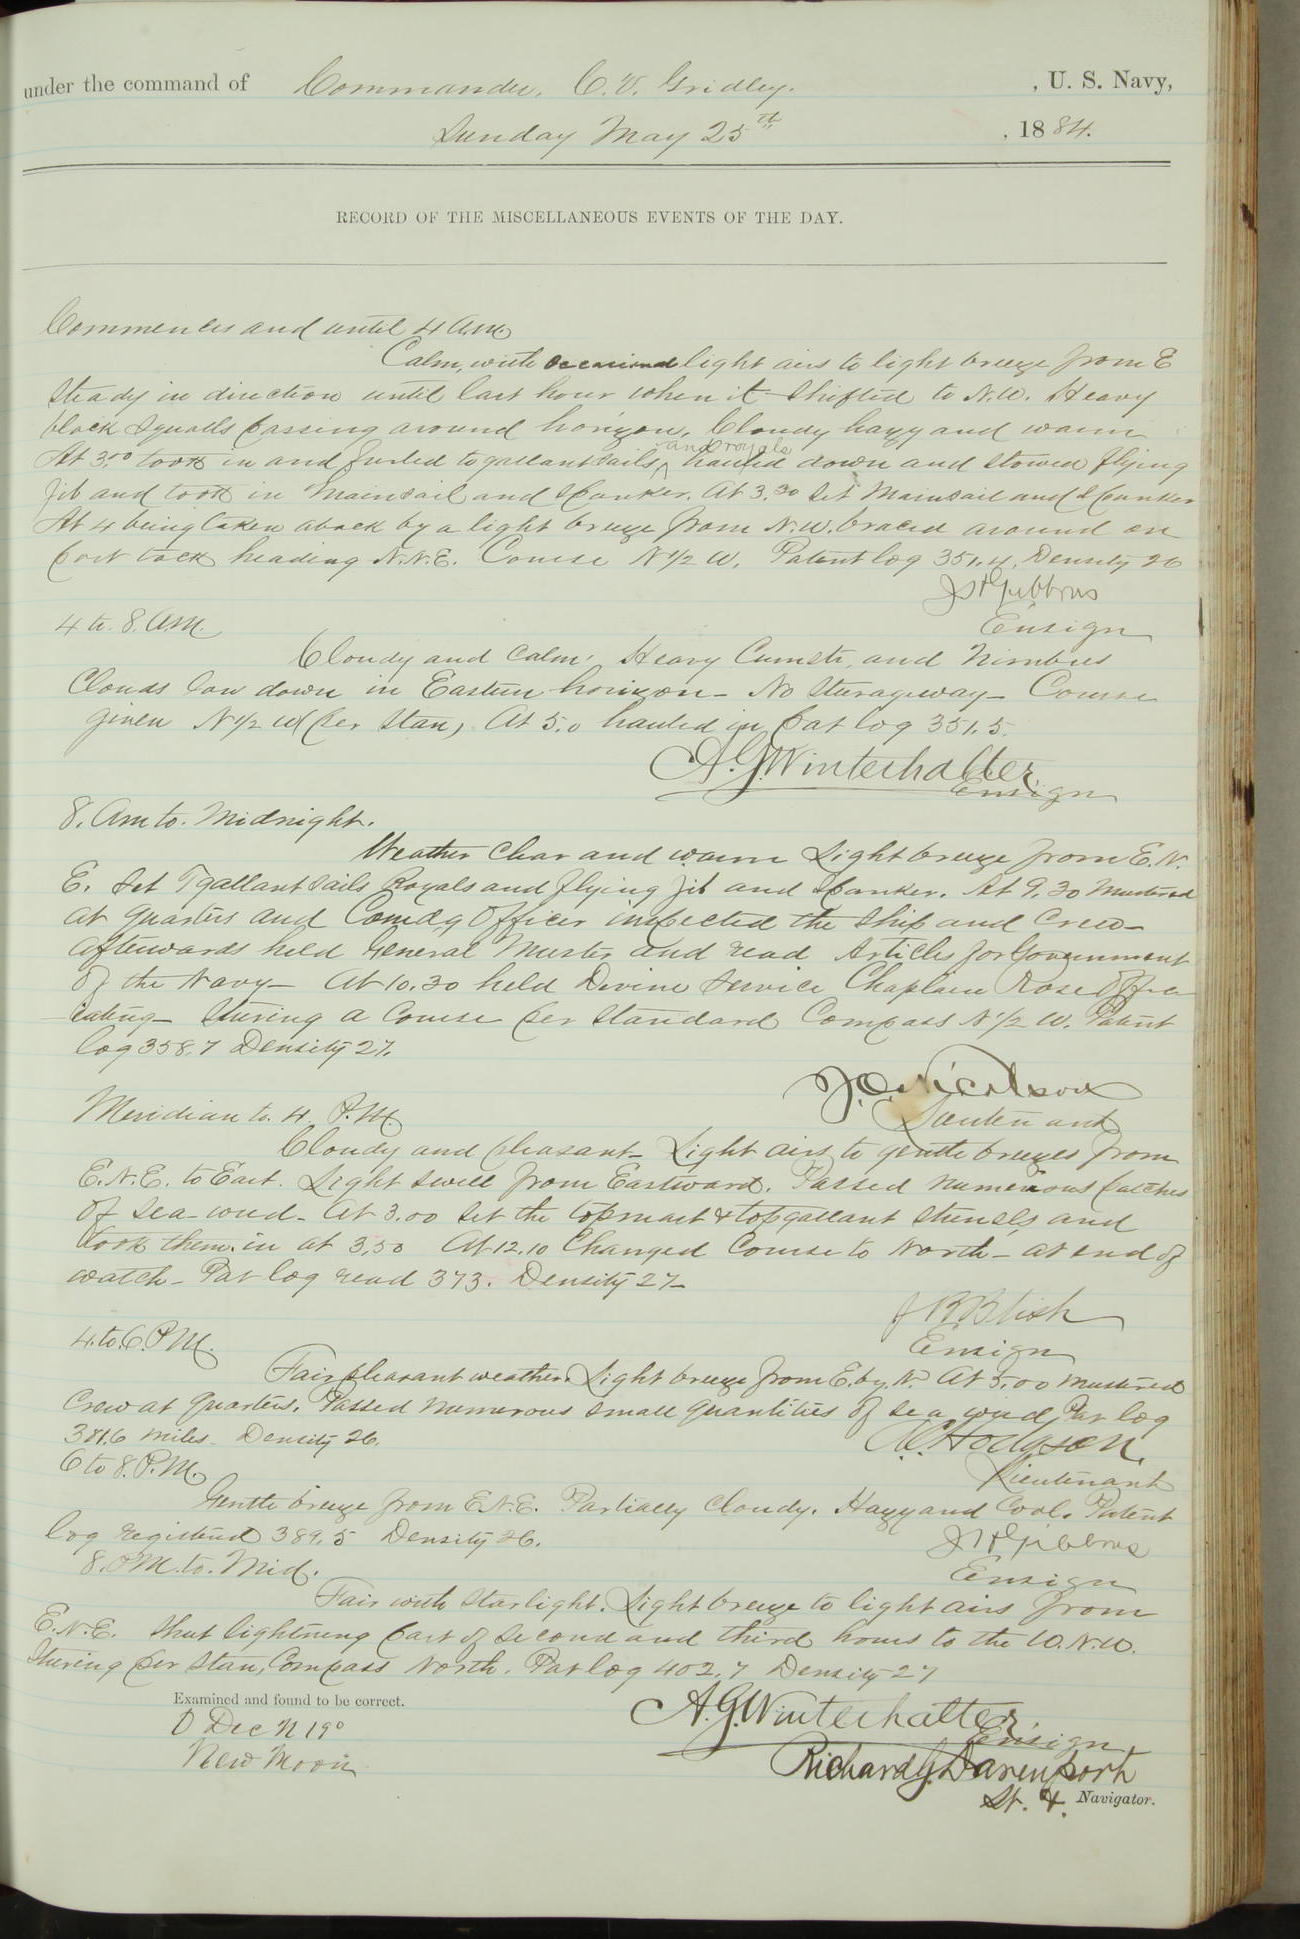 under the command of Commander, C. V. Gridley. , U. S. Navy,
Sunday May 25th , 1884.
RECORD OF THE MISCELLANEOUS EVENTS OF THE DAY.
Commences and until 4 A.M.
Calm, with occasional light airs to light breeze from E
steady in direction until last hour when it shifted to N.W. Heavy
black squalls passing around horizon, Cloudy hazy and warm
and royals
At 3.00 took in and furled to'gallant sails, hauled down and stowed flying
jib and took in mainsail and spanker. At 3.30 set Mainsail and Spanker
At 4 being taken aback by a light breeze from N.W. braced around on
port tack heading N.N.E. Course N 1/2 W. Patent log 351.4. Density 26
J H Gibbons
Ensign
4 to 8. A.M.
Cloudy and Calm. Heavy Cum str. and Nimbus
Clouds low down in Eastern horizon - No steerageway - Course
given N 1/2 W (per Stan) At 5.0 hauled in pat log 351.5.
A.G. Winterhalter
Ensign
8. Am to. Midnight.
Weather Clear and warm Light breeze from E.N.
E. Set T'gallant sails Royals and flying jib and Spanker. At 9.30 Mustered
at Quarters and Comdg Officer inspected the ship and Crew -
afterwards held General Muster and read Articles for Government
of the Navy - At 10.30 held Divine Service Chaplain Rose offi-
ciating - Stering a Course per Standard Compass N 1/2 W. Patent
log 358.7 Density 27.
J.O. Nicolson
Lieutenant
Meridian to. 4 P.M.
Cloudy and pleasant - Light airs to gentle breezes from
E.N.E. to East. Light swell from Eastward. Passed numerious patches
of sea-weed - At 3.00 set the topmast & topgallant stunsls, and
took them in at 3.50 At 12.10 Changed Course to North - at end of
watch - Pat log read 373. Density 27 -
J B Blish
Ensign
4. to. 6. P.M.
Fair pleasant weather. Light breeze from E. by. N. At 5.00 mustered
Crew at Quarters. Passed numerous small quantities of sea weed, Pat log
381.6 miles. Density 26.
A.C. Hodgson.
Lieutenant
6 to 8. P.M.
Gentle breeze from E.N.E. Partially Cloudy. Hazy and Cool. Patent
log registered 389.5 Density 26.
J H Gibbons
Ensign
8. P.M. to. Mid.
Fair with Starlight. Light breeze to light airs from
E.N.E. Sheet lightning part of second and third hours to the W.N.W.
Stering per Stan, Compass North. Pat log 402.7 Density 27
A.G. Winterhalter
Ensign
Examined and found to be correct.
Dec N 19°
New Moon
Richard G. Davenport
Lt. & Navigator.